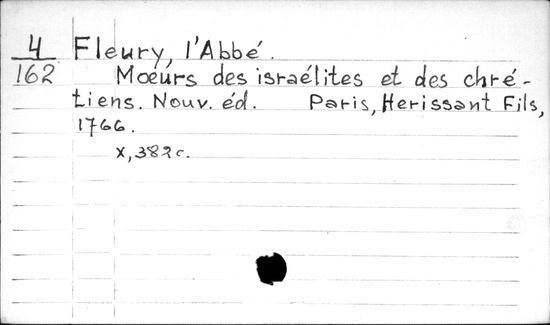 4 Fleury, l'Abbé.
162 Moeurs des israélites et des chré-
tiens. Nouv. éd. Paris, Herissant Fils,
1766.
X, 382 c.